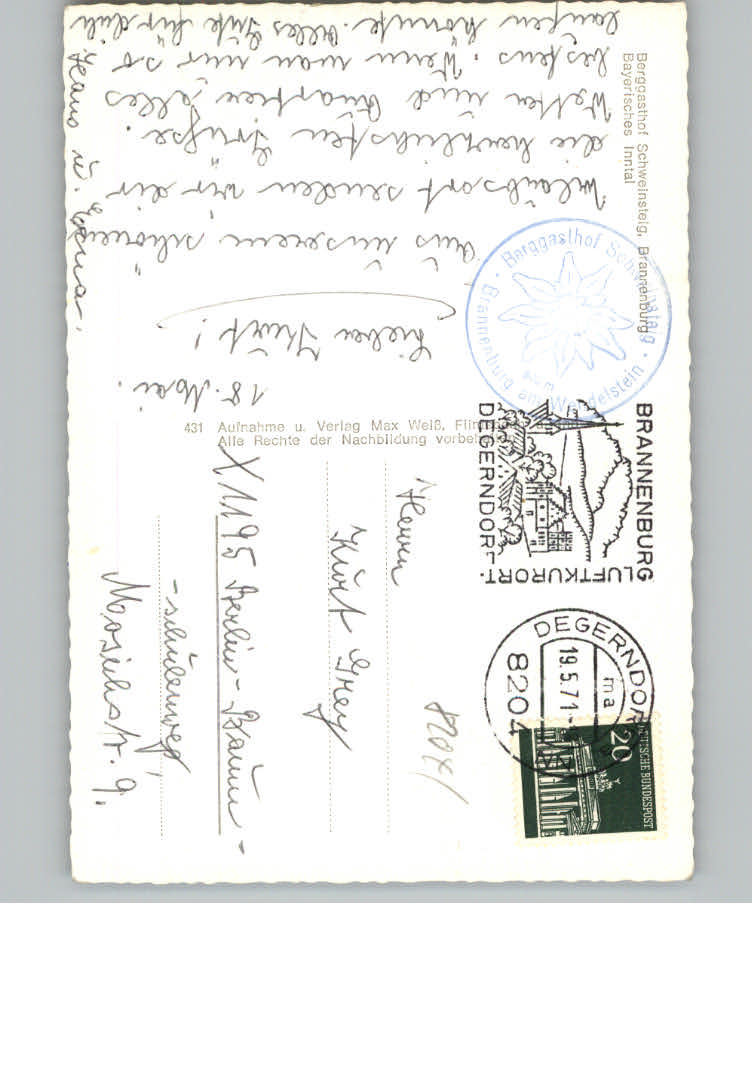 Berggasthof Schweinsteig, Brannenburg
Bayerisches Inntal
18. Mai.
Lieber Kurt!
Aus unserem schönen
Urlaubsort senden wir dir
die herzlichsten Grüße.
Wetter und Quartier alles
bestens. Wenn man nur so
laufen könnte. Alles Gute für dich
Hans u. Erna.
431 Aufnahme u. Verlag Max Weiß,
Alle Rechte der Nachbildung vorbehalten
Berggasthof Schweinsteig
Brannenburg am Wendelstein
BRANNENBURG
DEGERNDORF
LUFTKURORT
DEGERNDORF
19.5.71
ma
8204
20
DEUTSCHE BUNDESPOST
8204
Herrn
Kurt Grey
X 1195 Berlin-Baum-
-schulenweg,
Mosichstr. 9.